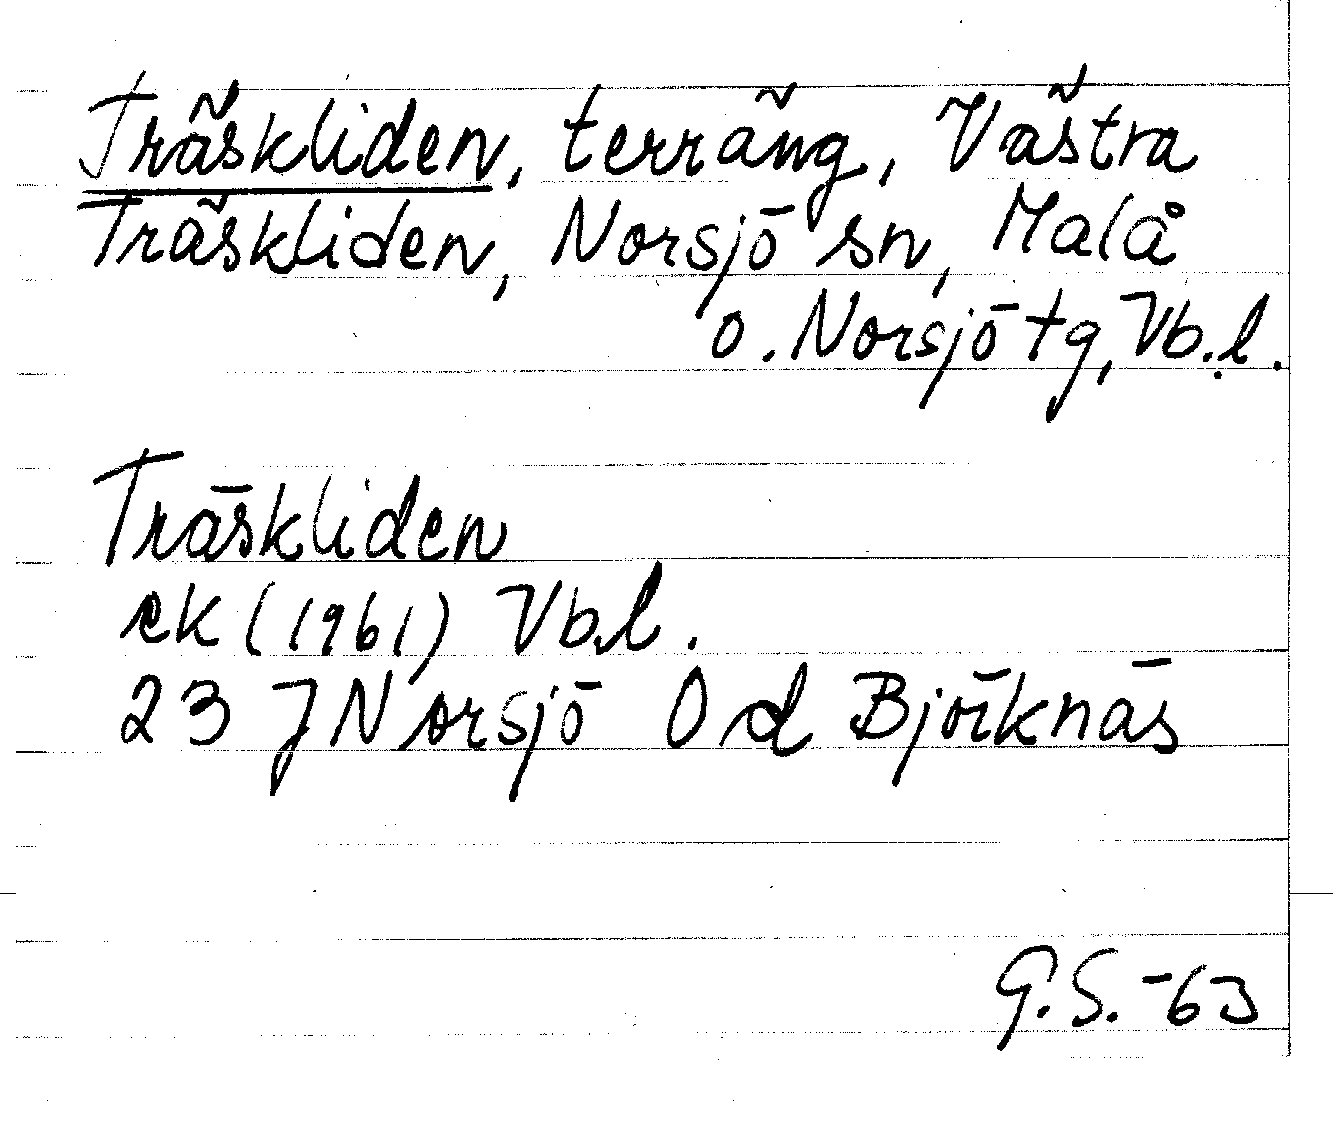 Träskliden, terräng, Västra
Träskliden, Norsjö sn, Malå
o. Norsjö tg, Vb.l.
Träskliden
ek (1961) Vb.l.
23 J Norsjö 0 d Björknäs
G.S. -63